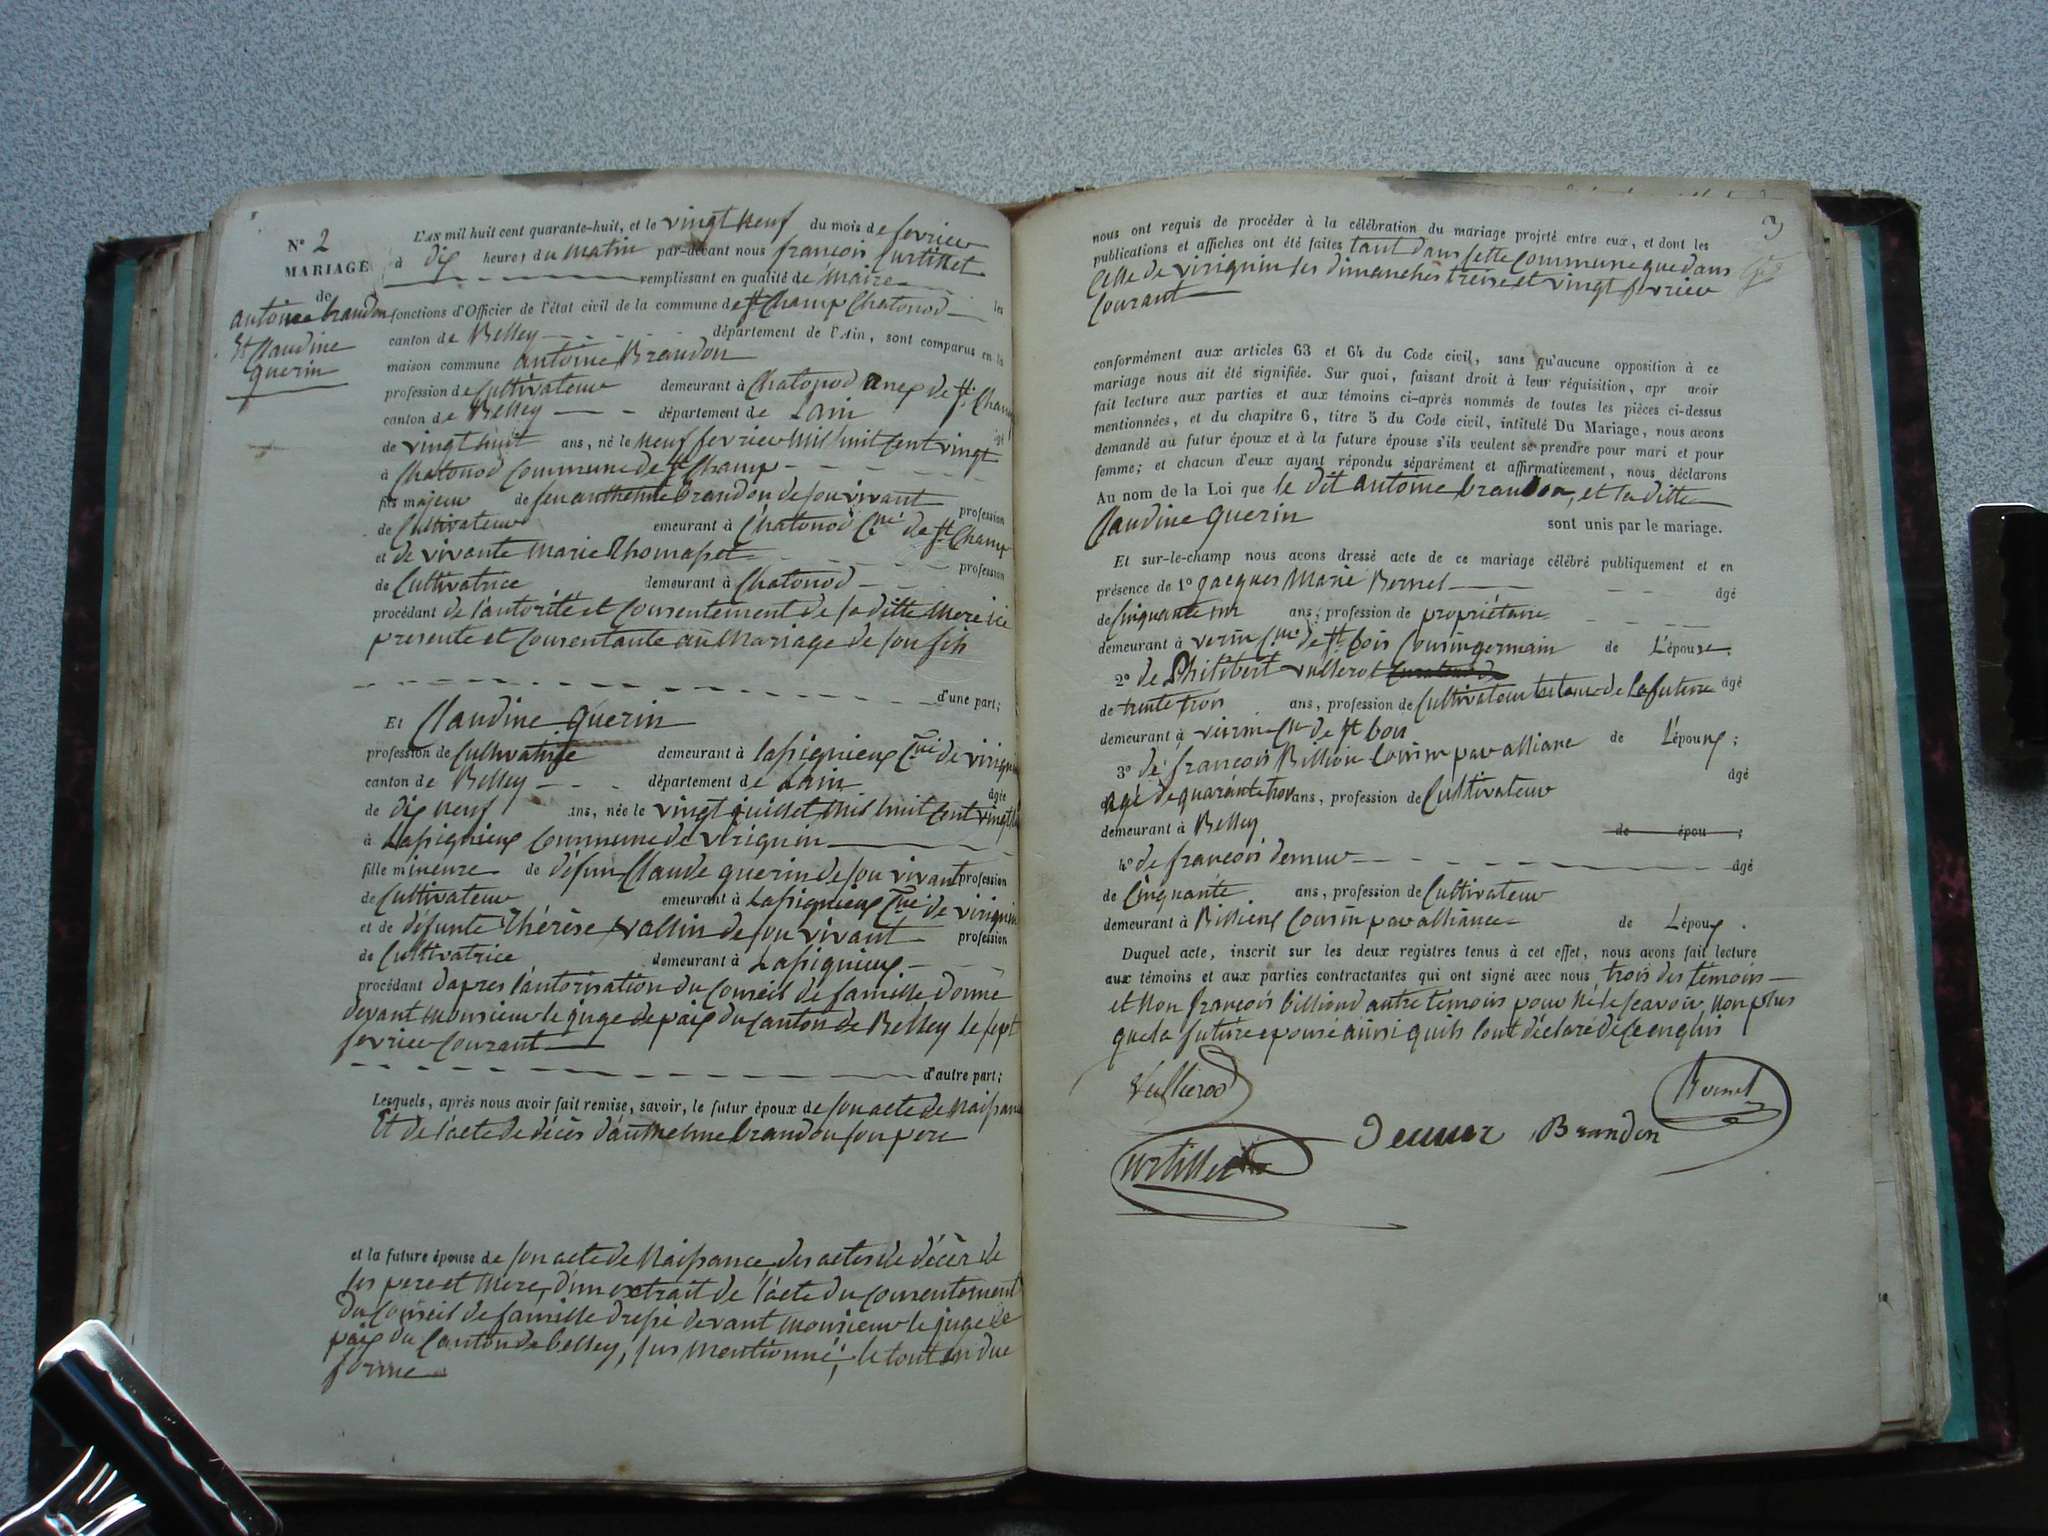 N° 2
MARIAGE
de
antoine brandon
Et Claudine
querin
L'AN mil huit cent quarante-huit, et le vingt neuf du mois de fevrier
à dix heures du matin par-devant nous françois Curtillet
remplissant en qualité de Maire
fonctions d'Officier de l'état civil de la commune de St Champ Chatonod les
canton de Belley département de l'Ain, sont comparus en la
maison commune antoine Brandon
profession de Cultivateur demeurant à Chatonod anex de St Champ
canton de Belley département de Lain
âgé
de vingt huit ans, né le neuf fevrier mil huit cent vingt
à Chatonod Commune de St Champ
fils majeur de feu anthelme brandon de son vivant profession
de Cultivateur emeurant à Chatonod Cne de St Champ
et de vivante Marie Thomasset profession
de Cultivatrice demeurant à Chatonod
procédant de l'autorité et consentement de sa ditte Mere ici
presente et consentante au Mariage de son fils
d'une part;
Et Claudine querin
profession de Cultivatrise demeurant à Lassignieux Cne de virignin
canton de Belley département de Lain
âgée
de dix neuf ans, née le vingt juillet mil huit cent vingt
à Lassignieux Commune de virignin
fille mineure de défun Claude querin de son vivant profession
de Cultivateur emeurant à Lassignieux Cne de virignin
et de défunte Thérèse vallin de son vivant profession
de Cultivatrice demeurant à Lassignieux
procédant dapres l'autorisation du Conseil de famille donné
devant monsieur le juge de paix du canton de Belley le sept
fevrier Courant
d'autre part;
Lesquels, après nous avoir fait remise, savoir, le futur époux de son acte de Naissance
Et de l'acte de décès d'anthelme brandon son pere
et la future épouse de son acte de Naissance, des actes de décès de
ses pere et Mere, d'un extrait de l'acte du consentement
du Conseil de famille dressé devant monsieur le juge de
paix du Canton de belley, sus mentionné, le tout en due
forme
3
nous ont requis de procéder à la célébration du mariage projeté entre eux, et dont les
publications et affiches ont été faites tant dans cette commune que dans
celle de virignin les dimanches treize et vingt fevrier
Courant
conformément aux articles 63 et 64 du Code civil, sans qu'aucune opposition à ce
mariage nous ait été signifiée. Sur quoi, faisant droit à leur réquisition, apr avoir
fait lecture aux parties et aux témoins ci-après nommés de toutes les pièces ci-dessus
mentionnées, et du chapitre 6, titre 5 du Code civil, intitulé Du Mariage, nous avons
demandé au futur époux et à la future épouse s'ils veulent se prendre pour mari et pour
femme; et chacun d'eux ayant répondu séparément et affirmativement, nous déclarons
Au nom de la Loi que le dit antoine brandon, et la ditte
Claudine querin sont unis par le mariage.
Et sur-le-champ nous avons dressé acte de ce mariage célébré publiquement et en
présence de 1° jacques Marie Bornet âgé
de cinquante un ans; profession de propriétaire
demeurant à verin Cne de St bois Cousin germain de L'épouse;
2° de Philibert vullerot
de trente trois ans, profession de Cultivateur tuteur de la future âgé
demeurant à virin Cne de St bois de L'épouse;
3° de françois Billion Cousin par alliane âgé
agé de quarante trois ans, profession de Cultivateur
demeurant à Belley de épou ;
4° de françois demur âgé
de Cinquante ans, profession de Cultivateur
demeurant à Billieux Cousin par alliance de L'époux.
Duquel acte, inscrit sur les deux registres tenus à cet effet, nous avons fait lecture
aux témoins et aux parties contractantes qui ont signé avec nous trois des témoins
et non françois billiond autre temoins pour ne le scavoir, non plus
que la future epouse ainsi quils l'ont déclaré de ce enquis
Vullierod
Bornet
Demur Brandon
Curtillet